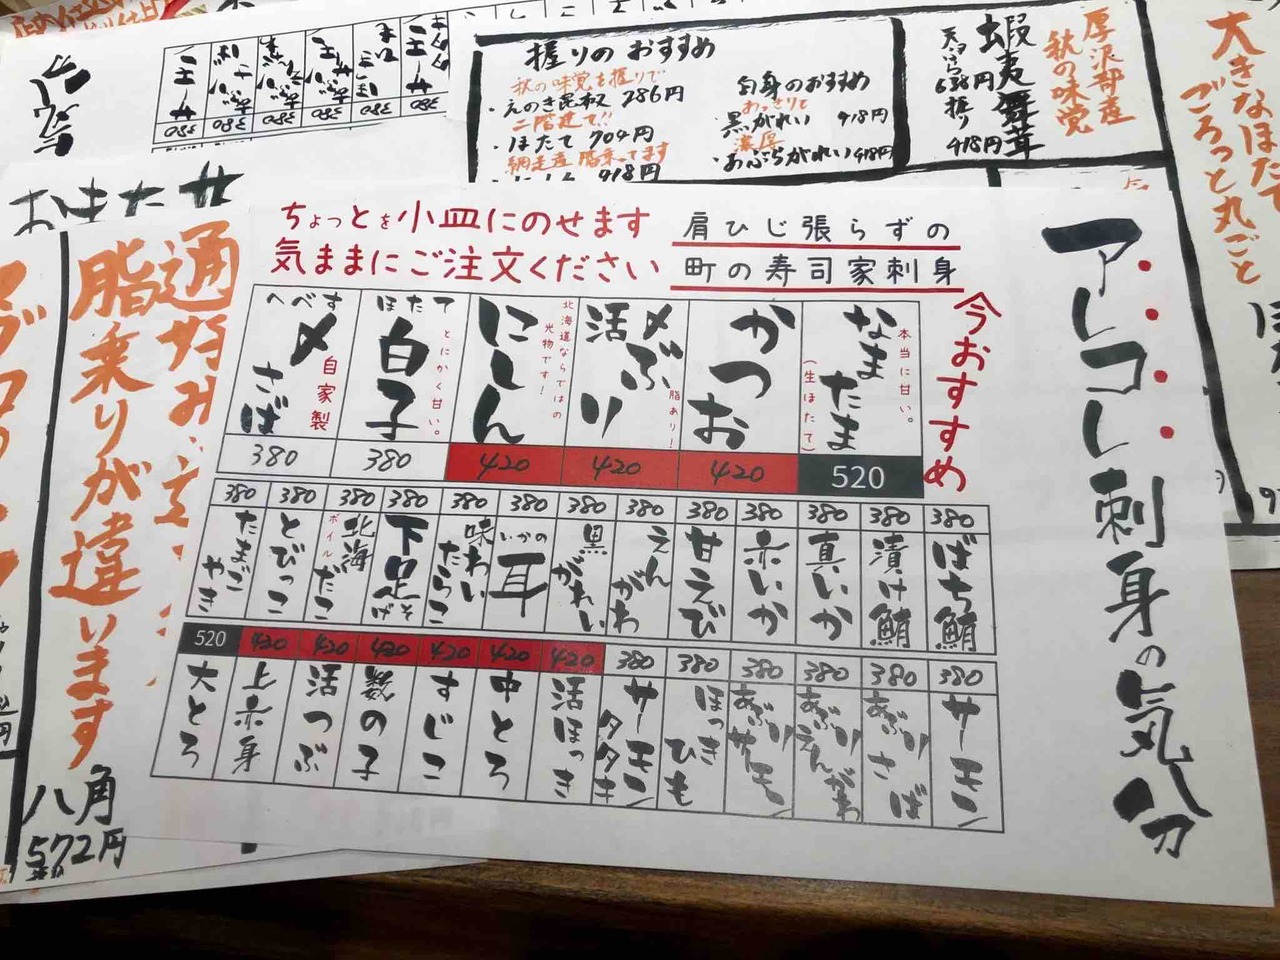 握りのおすすめ
秋の味覚を握りで
・えのき昆布 286円
二階建て!!
・ほたて 704円
網走産 脂乗ってます
・にしん 418円
白身のおすすめ
あっさりと
・黒がれい 418円
濃厚
・あぶらがれい 418円
厚沢部産
秋の味覚
蝦夷舞茸
天ぷら 638円
握り 418円
大きなほたて
ごろっと丸ごと
おまたせ
通好み
脂乗りが違います
八角
572円
アレコレ刺身の気分
ちょっとを小皿にのせます
気ままにご注文ください
肩ひじ張らずの
町の寿司家刺身
今おすすめ
本当に甘い。
なまたま
(生ほたて)
520
かつお
420
〆
活ぶり
脂あり!
420
北海道ならではの
光物です!
にしん
420
ほたて
白子
とにかく甘い。
380
へべす
〆さば
自家製
380
ばち鮪 380
漬け鮪 380
真いか 380
赤いか 380
甘えび 380
えんがわ 380
黒がれい 380
いかの耳 380
味わいたらこ 380
下足 380
北海だこ ボイル 380
とびっこ 380
たまごやき 380
サーモン 380
あぶりさば 380
あぶりえんがわ 380
あぶりサーモン 380
ほっきひも 380
サーモンタタキ 380
活ほっき 420
中とろ 420
すじこ 420
数の子 420
活つぶ 420
上赤身 420
大とろ 520